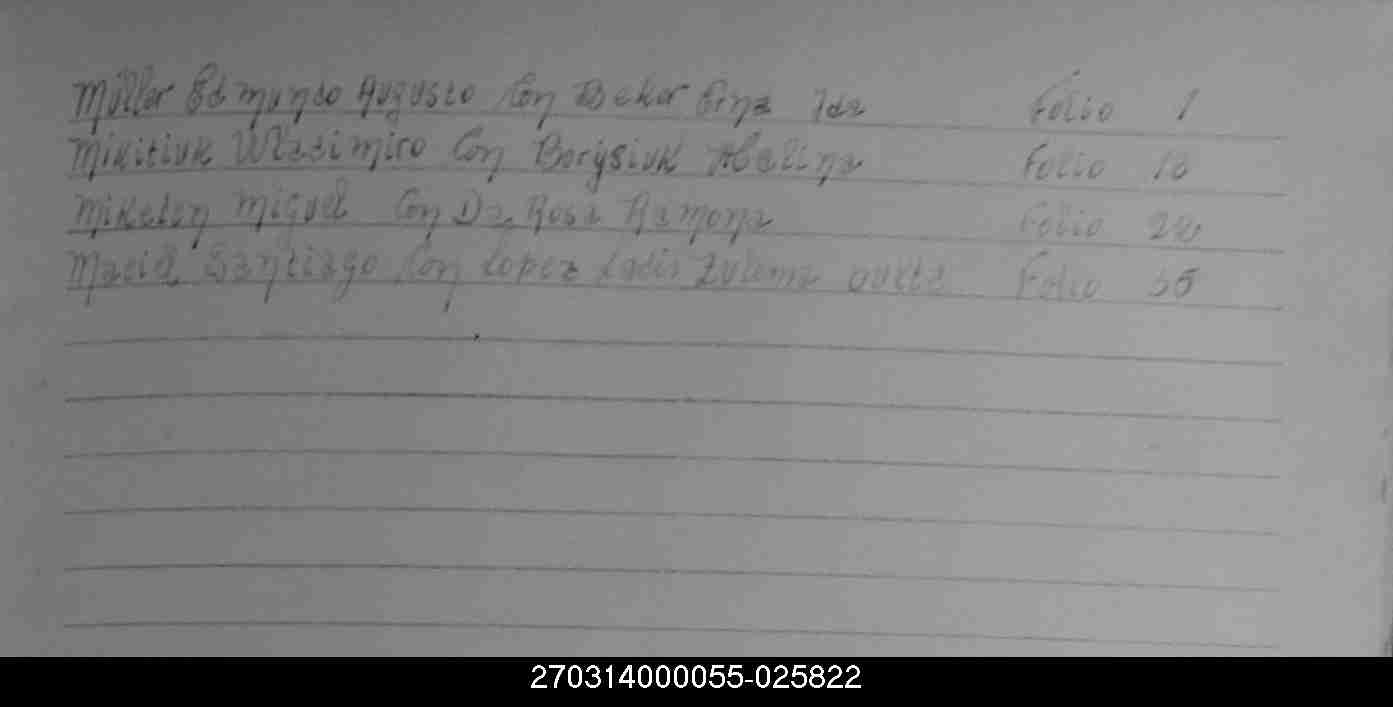 Müller Edmundo Augusto Con Beker Erna Ida Folio 1
Mikitiuk Wladimiro Con Borysiuk Abelina Folio 18
Miketen Miguel Con Da Rosa Ramona Folio
Maciel Santiago Con Lopez Zulema Folio
270314000055-025822